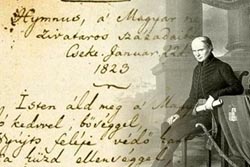 Hymnus, a' Magyar n
zivataros századaib
Cseke. Januar. 22d.
1823
Isten áld meg a' Ma
kedvvel, bőséggel,
Nyújts feléje védő
ha küzd ellenséggel